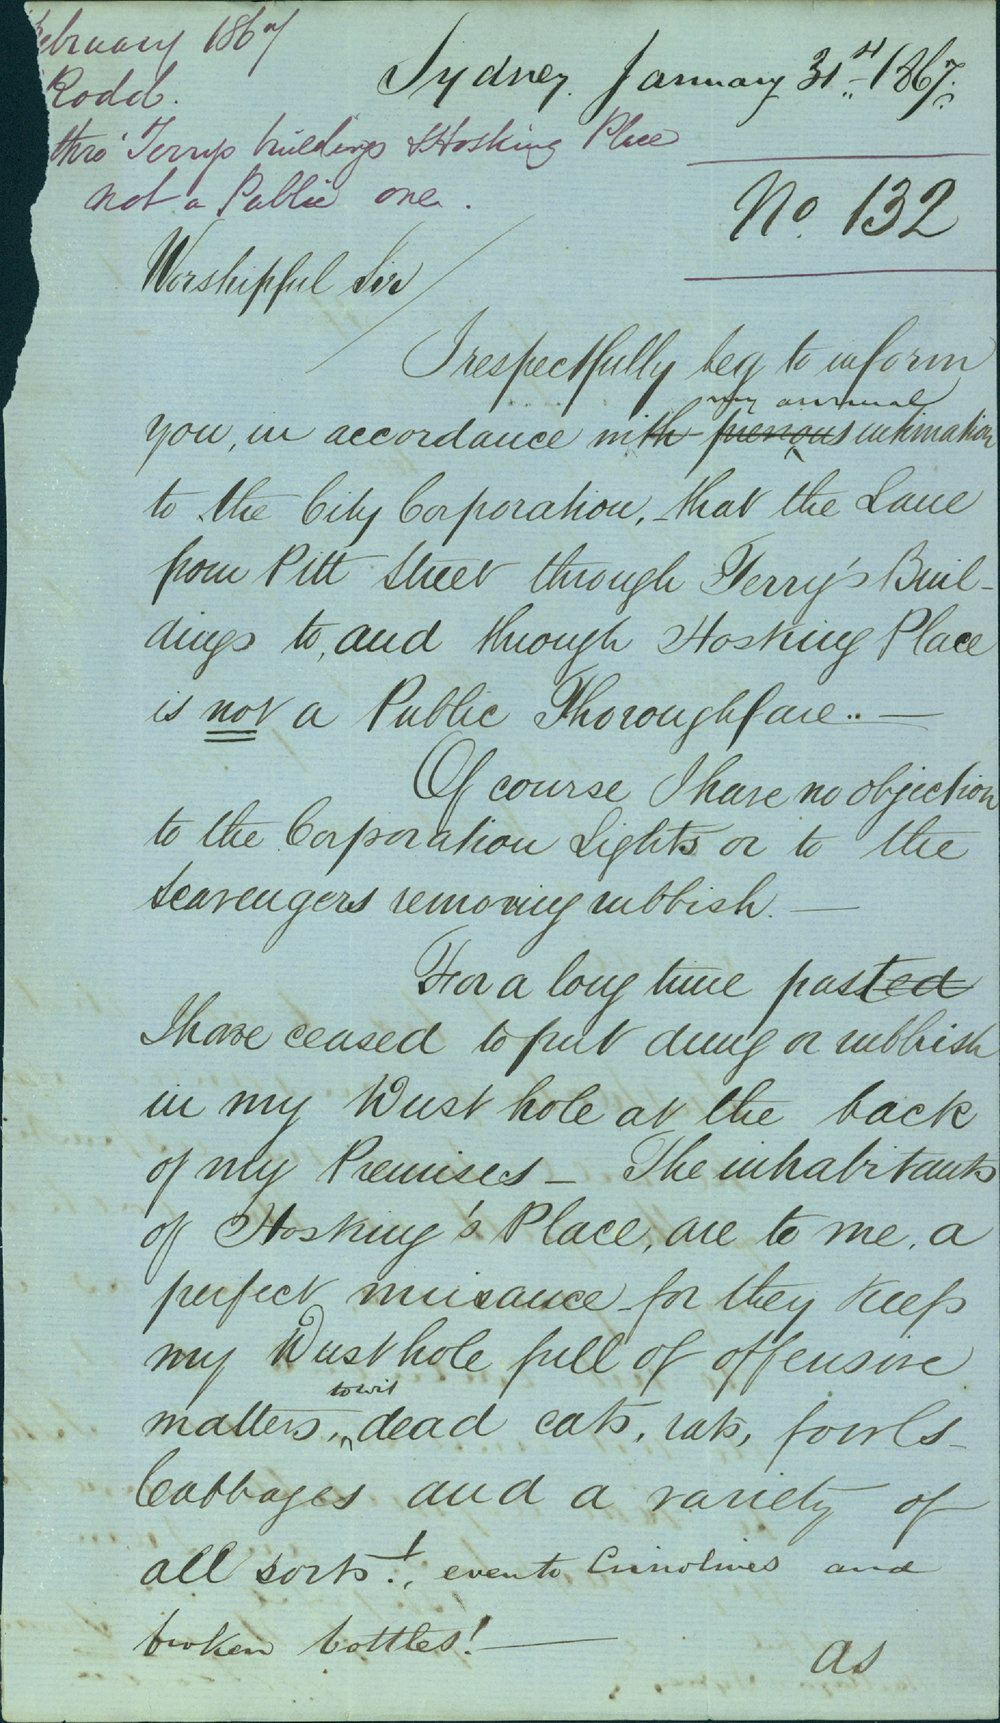 February 1867
Rodd.
thro' Terrys buildings & Hosking Place
not a Public one.
Sydney. January 31st 1867.
No. 132
Worshipful Sir
I respectfully beg to inform
my annual
you, in accordance with previous intimation
to the City Corporation, that the Lane
from Pitt Street through Terry's Buil-
dings to, and through Hosking Place
is not a Public Thoroughfare.. —
Of course I have no objection
to the Corporation Lights or to the
Scavengers removing rubbish. —
For a long time pasted
I have ceased to put dung or rubbish
in my Dust hole at the back
of my Premises — The inhabitants
of Hosking's Place, are to me, a
perfect nuisance for they keep
my Dust hole full of offensive
to wit
matters, dead cats, rats, fowls
Cabbages and a variety of
all sorts!, even to Crinolines and
broken bottles! —
as